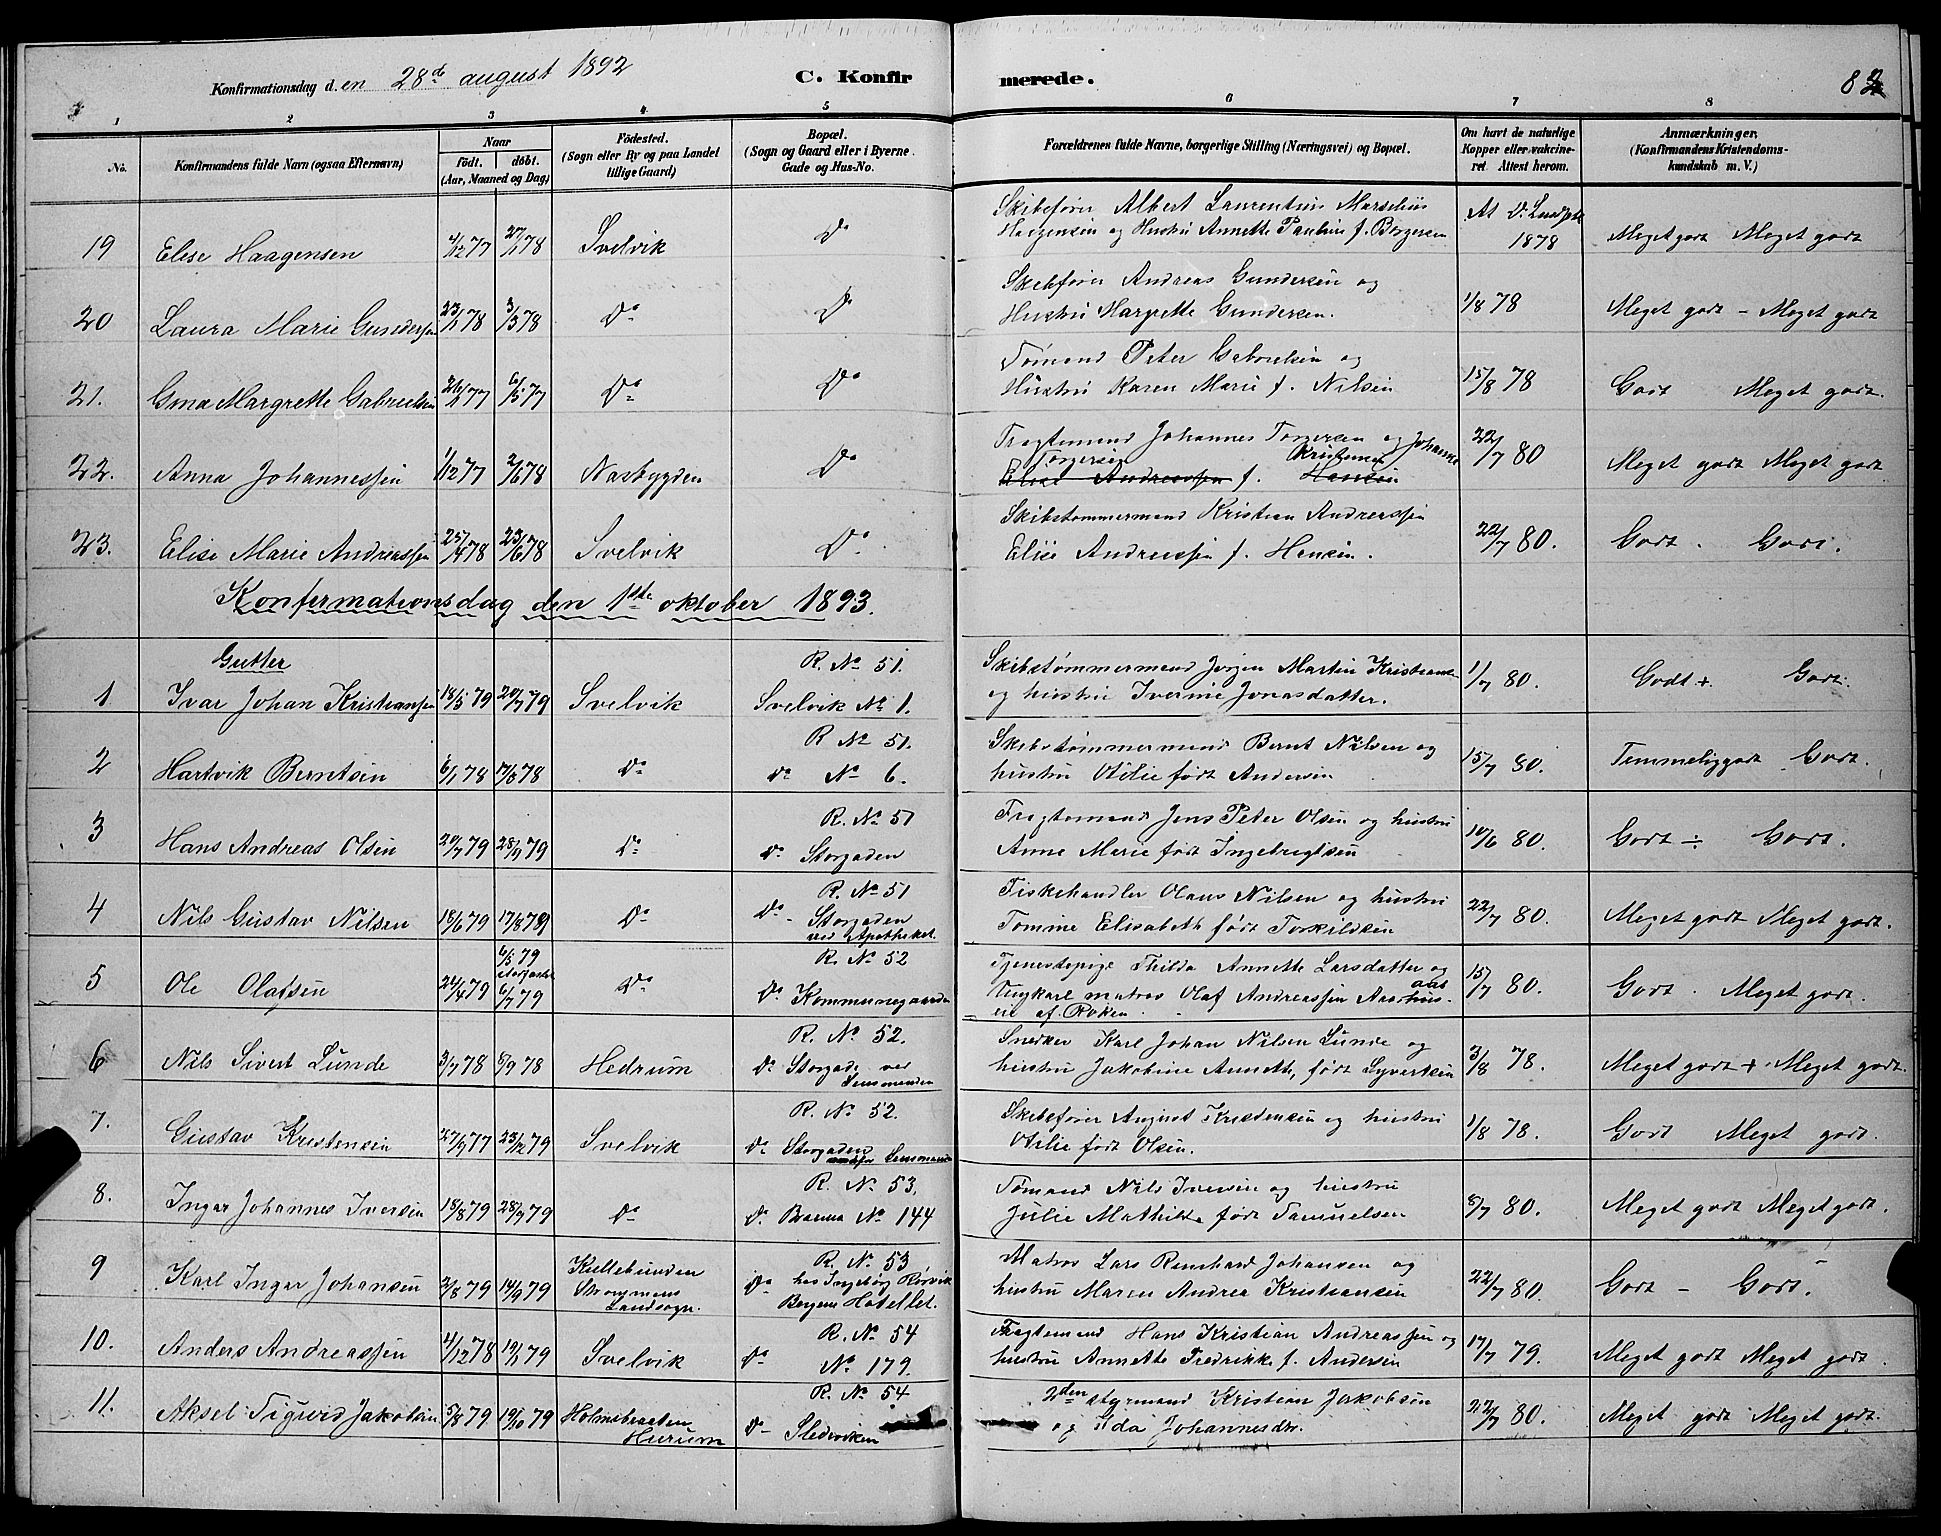 Konfirmationsdag d. en 28de august 1892 C. Konfirmerede. 82
1 2 3 4 5 6 7 8
No. Konfirmandens fulde Navn (ogsaa Efternavn) Naar født. døbt. (Aar, Maaned og Dag) Fødested. (Sogn eller By og paa Landet tillige Gaard) Bopæl. (Sogn og Gaard eller i Byerne Gade og Hus-No. Forældrenes fulde Navne, borgerlige Stilling (Næringsvei) og Bopæl. Om havt de naturlige Kopper eller vakcineret Attest herom. Anmærkninger. (Konfirmandens Kristendomskundskab m. V.)
Skibsfører Albert Laurentius Marselius At D.
19 Elise Haagensen 4/12 77 27/1 78 Svelvik Do Haagensen og Hustru Annette Pauline f. Borgersen 1878 Meget godt Meget godt
Skibsfører Andreas Gundersen og
20 Laura Marie Gundersen 23/1 78 3/3 78 Do Do Hustru Margrette Gundersen. 1/8 78 Meget godt - Meget godt
Tømand Peter Gabrielsen og
21. Gina Margrette Gabrielsen 77 6/5 77 Do Do Hustru Karen Marie f. Nilsen 15/8 78 Godt Meget godt.
Fragtemand Johannes Torgersen og Johanne
Torgersen Kristense
22. Anna Johannessen 1/12 77 2/6 78 Nasbygden Do Elise Andreassen f. Hansen 22/7 80 Meget godt Meget godt
Skibstømmermand Kristian Andreassen
23. Elise Marie Andreassen 25/4 78 23/6 78 Svelvik Do Elise Andreassen f. Hansen. 22/7 80. Godt. Godt.
Konfirmationsdag den 1ste oktober 1893.
Gutter R. No 51. Skibstømmermand Jørgen Martin Kristiansen
1 Ivar Johan Kristiansen 18/5 79 20/7 79 Svelvik Svelvik No 1. og hustru Iverine Jonasdatter. 1/7 80. Godt + Godt.
R No 51. Skibstømmermand Bernt Nilsen og
2 Hartvik Berntsen 6/1 78 17/3 78 Do Do No 6. hustru Otilie født Andersen 15/7 80. Temmelig godt Godt.
R. No 51 Fragtemand Jens Peter Olsen og hustru
3 Hans Andreas Olsen 20/7 79 28/9 79 Do Do Storgaden Anne Marie født Ingebregtsen 10/6 80. Godt ÷ Godt.
R. No 51 Fiskehandler Olaus Nilsen og hustru
4 Nils Gustav Nilsen 18/6 79 17/8 79 Do Do Storgaden Tomine Elisabeth født Torkildsen 22/7 80. Meget godt Meget godt.
ved Apotheket.
6/5 79 R. No 52 Tjenestepige Thilda Annette Larsdatter og
5 Ole Olafsen 24/4 79 6/7 79 Do Do Kommunegaarden Ungkarl matros Olaf Andreassen 15/7 80. Godt. Meget godt.
af Røken.
R. No 52. Snedker Karl Johan Nilsen Lunde og
6 Nils Sivert Lunde 3/7 78 8/9 78 Hedrum Do Storgade ved hustru Jakobine Annette, født Syvertsen 3/8 78. Meget godt + Meget godt.
Lensmanden
R. No 52. Skibsfører August Kristensen og hustru
7. Gustav Kristensen 27/9 77 23/12 79 Svelvik Do Storgaden Otilie født Olsen. 1/8 78. Godt Meget godt.
Lensmanden
R. No 53. Tømand Nils Iversen og hustru
8. Ingar Johannes Iversen 18/8 79 28/9 79 Do Do Banna No 144 Julie Mathilde født Samuelsen 8/7 80. Meget godt Meget godt.
R. No 53 Matros Lars Reinhard Johansen og
9 Karl Ingar Johansen 2/8 79 14/9 79 Kullebunden Do hos Ingebør Rørvik hustru Maren Andrea Kristiansen 22/7 80. Godt - Godt.
Strømmens Landsogn. Bergens Hotellet.
R. No 54 Fragtemand Hans Kristian Andreassen og
10. Anders Andreassen 4/12 78 19/1 79 Svelvik Do No 179. hustru Annette Fredrikke f. Andersen 17/7 79. Meget godt Meget godt.
R. No 54 2den styrmand Kristian Jakobsen
11. Aksel Sigurd Jakobsen 5/8 79 19/10 79 Holmsbraaten Hurum Do Sledviken og Ida Johannesdtr. 22/7 80. Meget godt Meget godt.